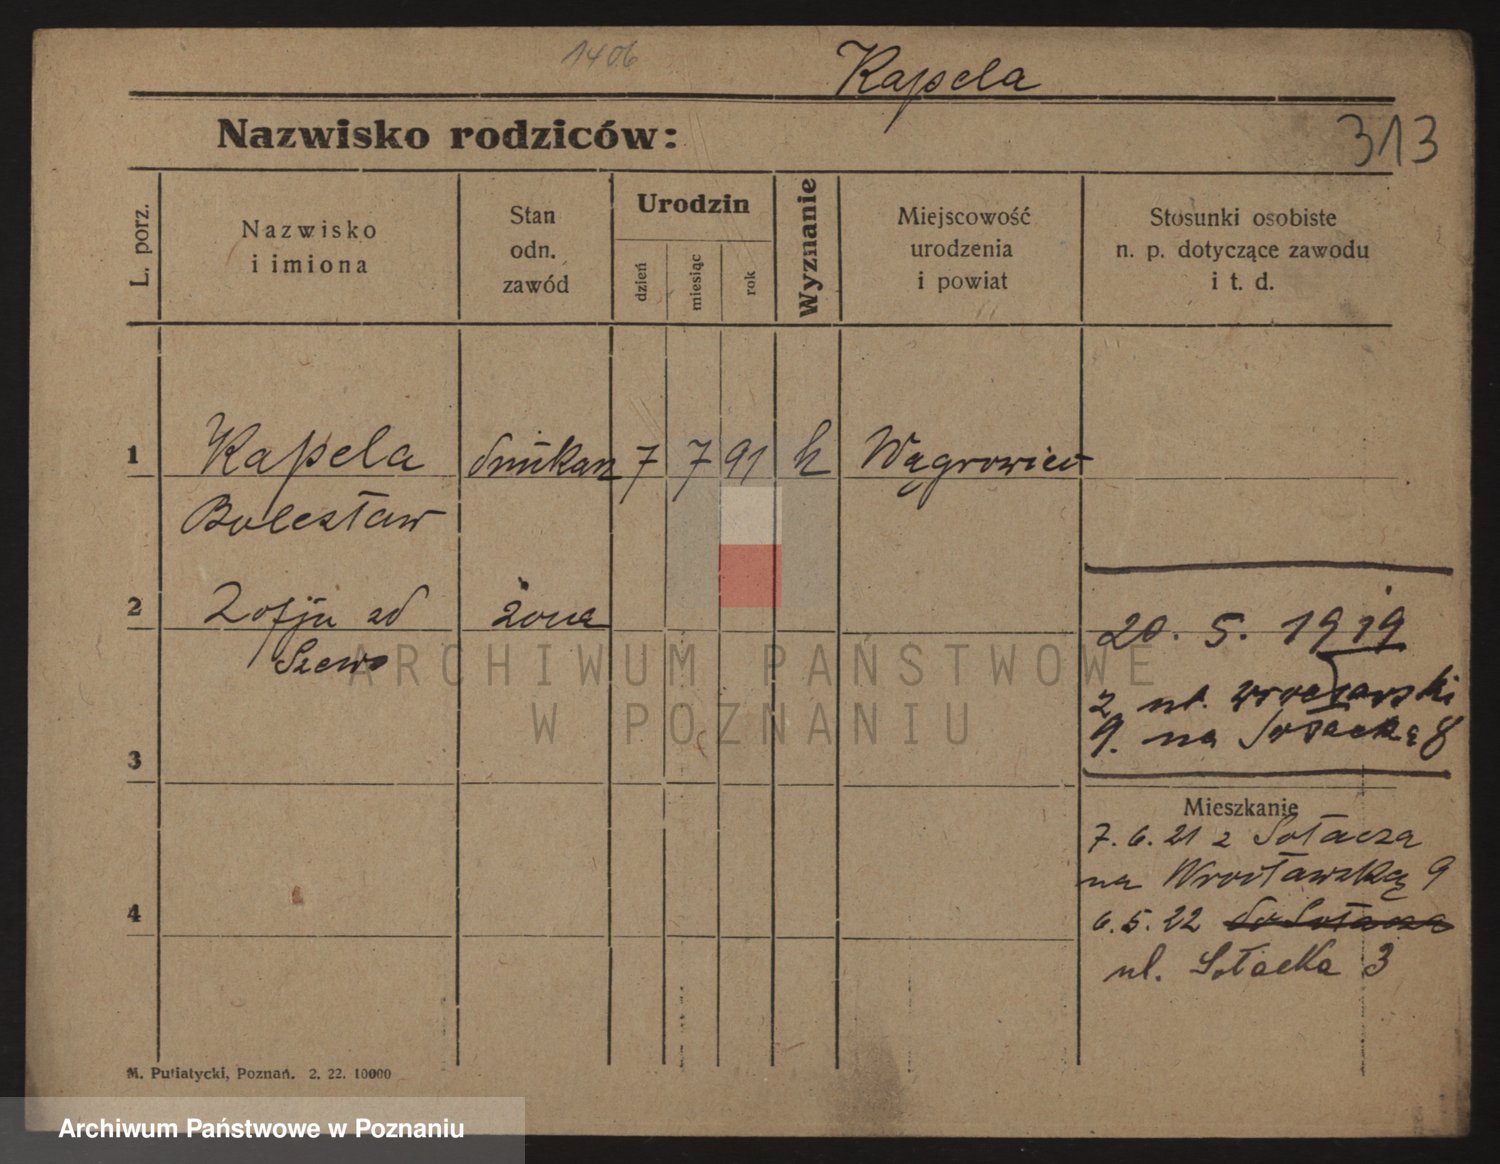 1406
Kapela
313
Nazwisko rodziców:
L. porz.
Nazwisko
i imiona
Stan
odn.
zawód
Urodzin
dzień
miesiąc
rok
Wyznanie
Miejscowość
urodzenia
i powiat
Stosunki osobiste
n. p. dotyczące zawodu
i t. d.
1 Kapela drukarz 7 7 91 k Wągrowiec
Bolesław
2 Zofja żona
20. 5. 1919
z ul. Wrocławski
9. na Sołacką 8
3
Mieszkanie
7. 6. 21 z Sołacza
na Wrocławską 9
4
6. 5. 22 do Sołacza
ul. Sołacka 3
M. Putiatycki, Poznań. 2. 22. 10000
ARCHIWUM PAŃSTWOWE
W POZNANIU
Archiwum Państwowe w Poznaniu